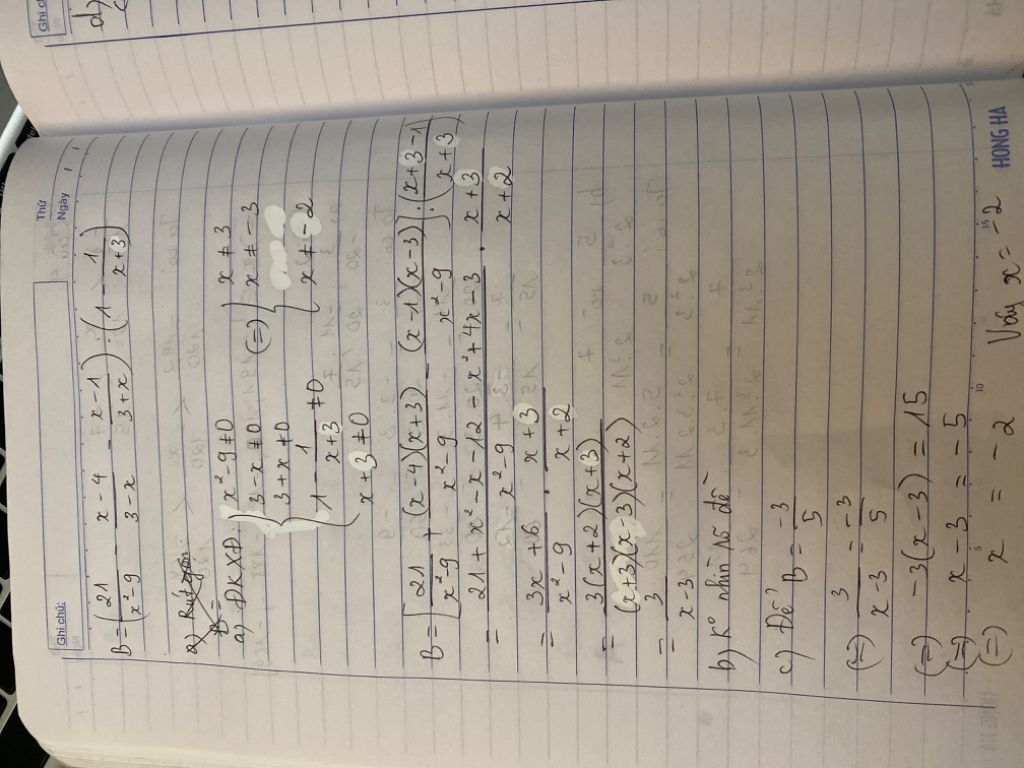 Ghi chú:
Thứ
Ngày
B = (21/(x²-9) - (x-4)/(3-x) - (x-1)/(3+x)) : (1 - 1/(x+3))
a) Rút gọn:
B =
a) ĐKXĐ
x² - 9 ≠ 0
3 - x ≠ 0
3 + x ≠ 0
1 - 1/(x+3) ≠ 0
x + 3 ≠ 0
(=) x ≠ 3
x ≠ -3
x ≠ -2
B = [21/(x²-9) + (x-4)(x+3)/(x²-9) - (x-1)(x-3)/(x²-9)] : (x+3-1)/(x+3)
= (21 + x² - x - 12 - x² + 4x - 3)/(x² - 9) . (x+3)/(x+2)
= (3x+6)/(x²-9) . (x+3)/(x+2)
= 3(x+2)(x+3)/((x+3)(x-3)(x+2))
= 3/(x-3)
b) K° nhìn rõ đề
c) Để B = -3/5
(=) 3/(x-3) = -3/5
(=) -3(x-3) = 15
(=) x - 3 = -5
(=) x = -2 Vậy x = -2
HONG HA
Ghi c
d)